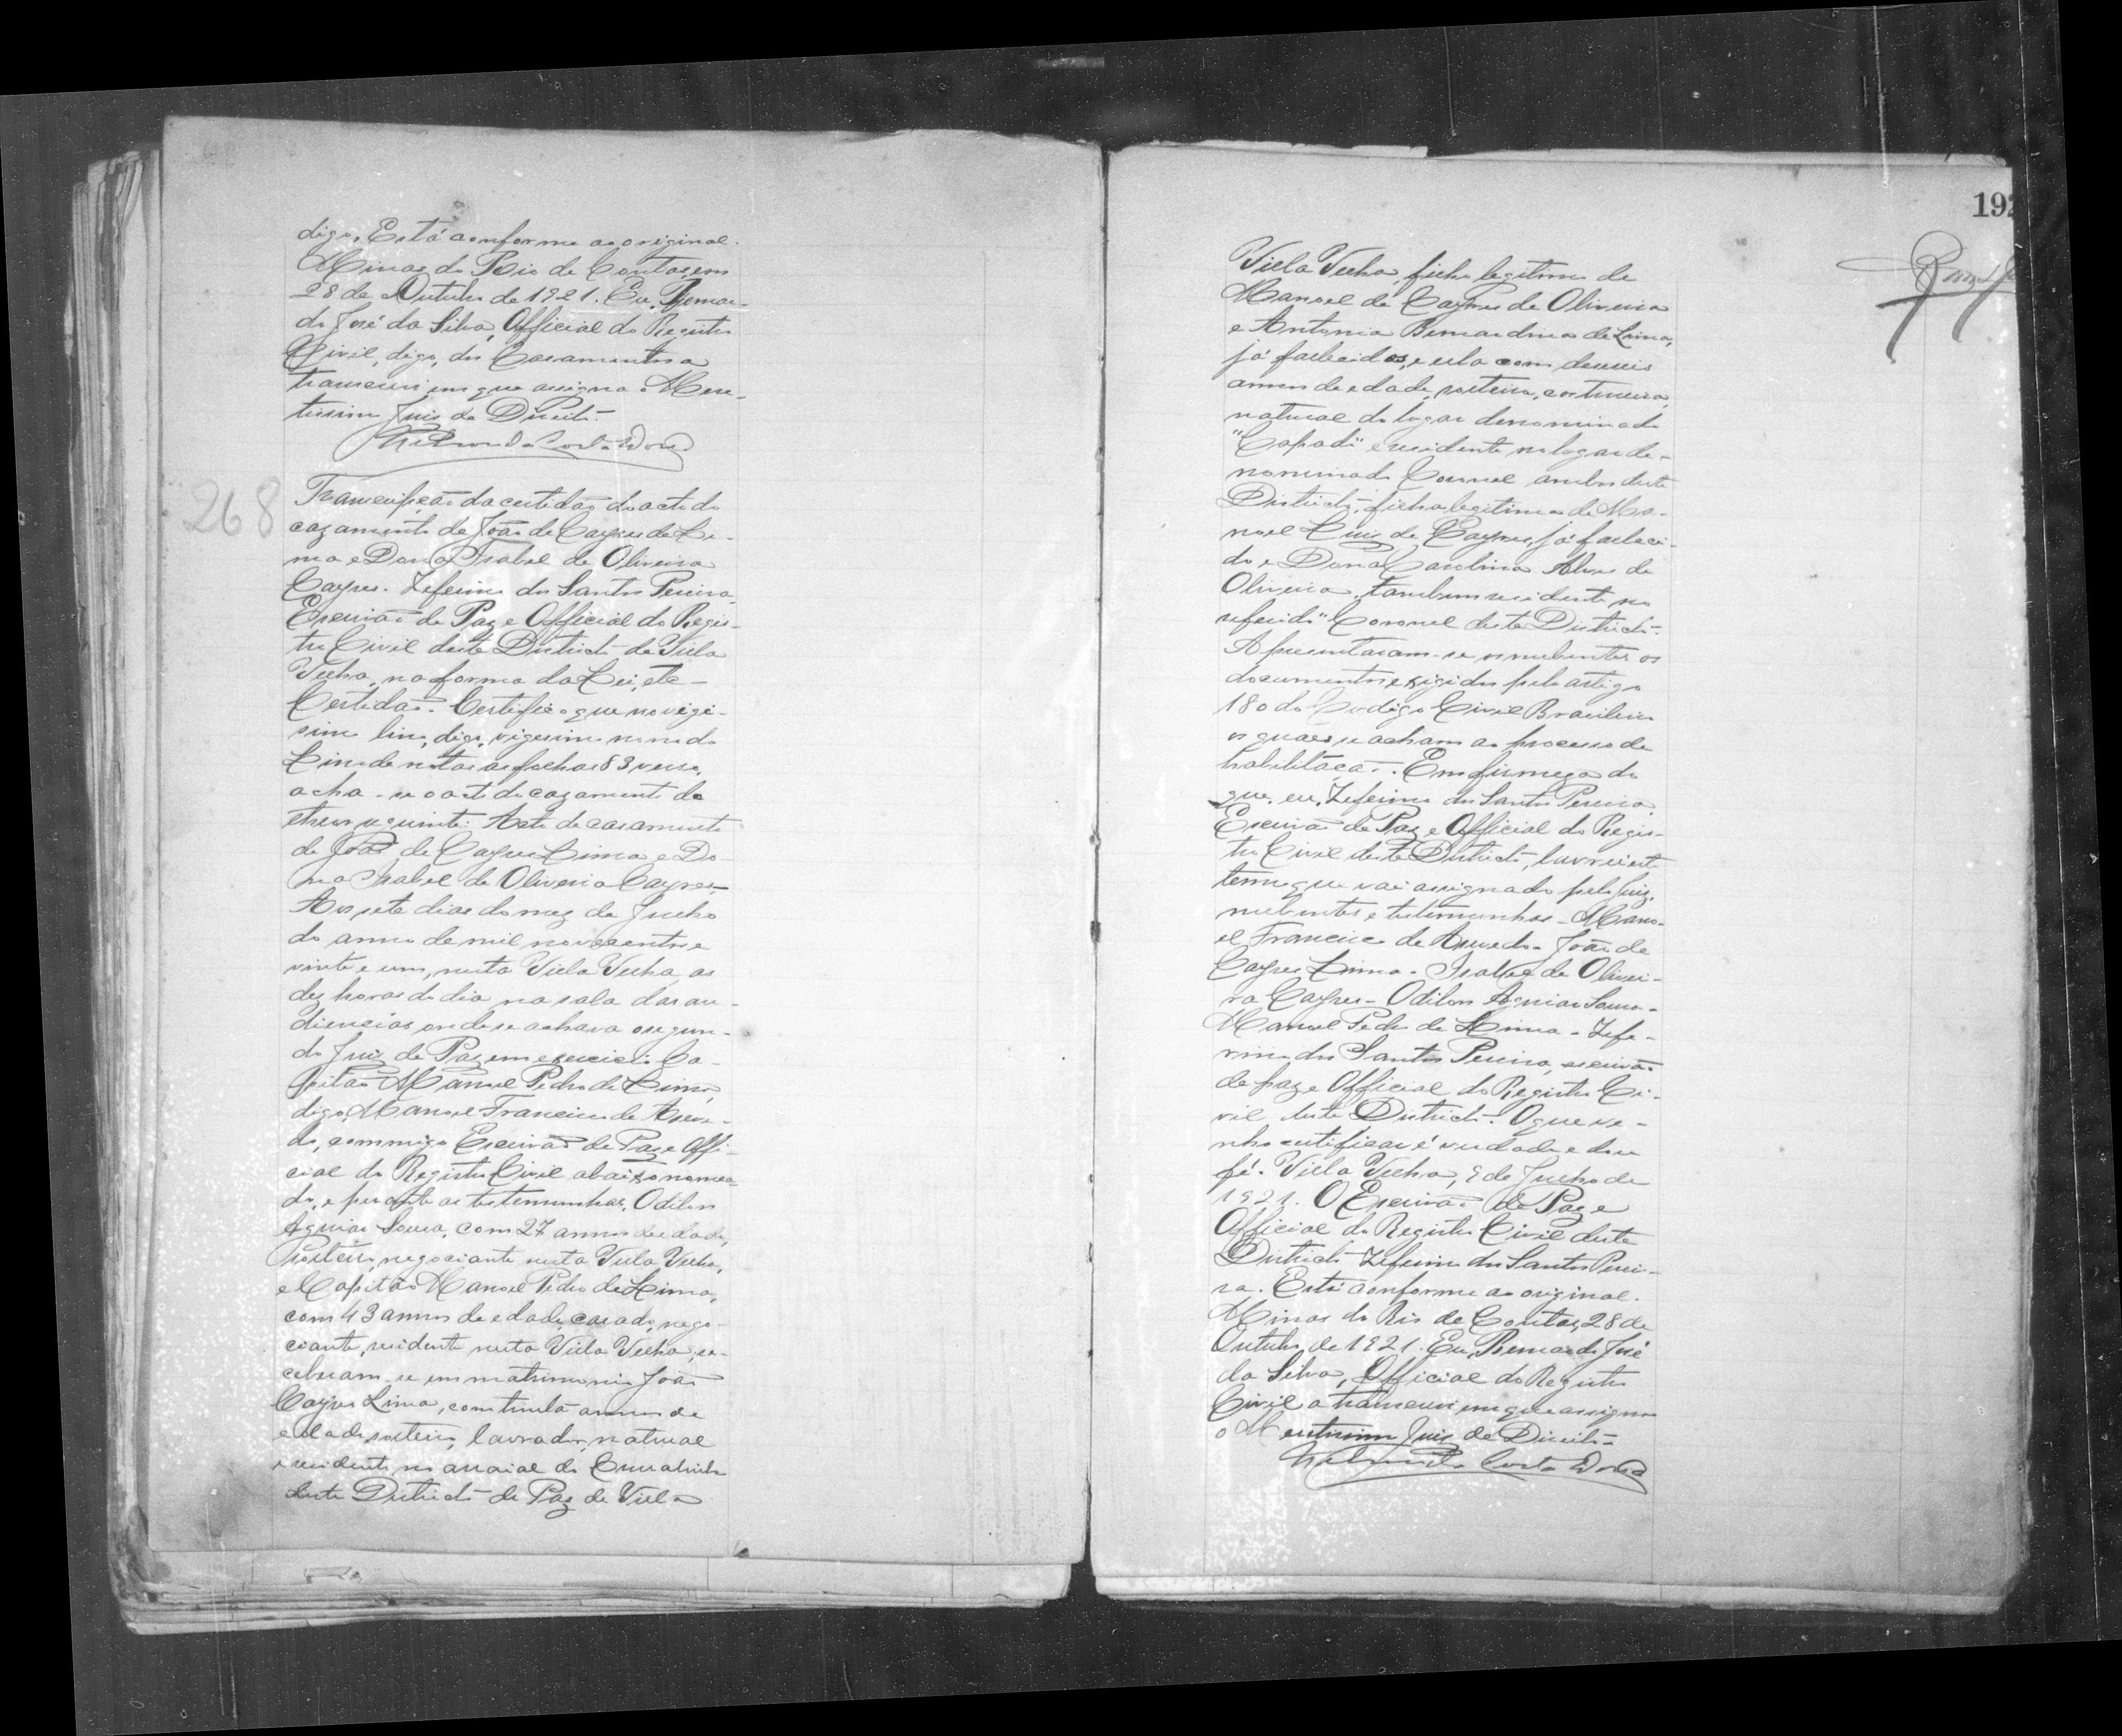 digo, Está conforme ao original.
Minas do Rio de Contas, em
28 de Outubro de 1921. Eu, Bernar-
do José da Silva, Official do Registro
Civil, digo, dos Casamentos a
transcrevi em que assigna o Mere-
tissimo Juiz de Direito.
268
Transcripção da certidão do acto do
cazamento de João de Cayres de Li-
ma e Dona Isabel de Oliveira
Cayres. Zeferino dos Santos Pereira,
Escrivão de Paz e Official do Regis-
tro Civil deste Districto de Villa
Velha, na forma da Lei, etc-
Certidão. Certifico que no vige-
simo livro, digo, vigesimo nono do
Livro de notas as folhas 83 verso,
acha-se o acto do cazamento do
theor seguinte: Acto de casamento
de João de Cayres Lima e Do-
na Isabel de Oliveira Cayres-
Aos sete dias do mez de Julho
do anno de mil novecentos e
vinte e um, nesta Villa Velha, as
dez horas do dia, na sala das au-
diencias onde se achava o segun-
do Juiz de Paz em exercicio Ca-
pitão Manoel Pedro de Lima,
digo, Manoel Francisco de Azeve-
do, commigo Escrivão de Paz e Offi-
cial do Registro Civil abaixo nomea-
do, e perante as testemunhas, Odilon
Aguiar Sousa, com 27 annos de edade,
solteiro, negociante nesta Villa Velha,
e Capitão Manoel Pedro de Lima,
com 43 annos de edade, casado, nego-
ciante, residente nesta Villa Velha, re-
ceberam-se em matrimonio João
Cayres Lima, com trinta annos de
edade, solteiro, lavrador, natural
e residente no arraial do
deste Districto de Paz de Villa
192
Villa Velha, filho legitimo de
Manoel de Cayres de Oliveira
e Antonia Bernardina de Lima,
já fallecidos, e ella com deseseis
annos de edade, solteira, costureira,
natural do lugar denominado
"Capado" e residente no lugar de-
nominado Coronel ambos deste
Districto, filha legitima de Ma-
noel Luis de Cayres, já falleci-
do e Dona Carolina Alves de
Oliveira, tambem residente no
referido "Coronel deste Districto.
Apresentaram-se os nubentes os
documentos exigidos pelo artigo
180 do Codigo Civil Brasileiro
os quaes se acham ao processo de
habilitação. Em firmeza do
que, eu, Zeferino dos Santos Pereira,
Escrivão de Paz e Official do Regis-
tro Civil deste Districto, lavrei este
termo que vai assignado pelo Juiz,
nubentes e testemunhas - Mano-
el Francisco de Azevedo - João de
Cayres Lima - Isabel de Olivei-
ra Cayres - Odilon Aguiar Sousa -
Manoel Pedro de Lima - Zefe-
rino dos Santos Pereira, escrivão
de paz e Official do Registro Ci-
vil deste Districto. O que ve-
nho certificar é verdade e dou
fé. Villa Velha, 9 de Julho de
1921. O Escrivão de Paz e
Official do Registro Civil deste
Districto Zeferino dos Santos Perei-
ra. Está conforme ao original.
Minas do Rio de Contas, 28 de
Outubro de 1921. Eu, Bernardo José
da Silva, Official do Registro
Civil a transcrevi em que assigna
o Meretissimo Juiz de Direito